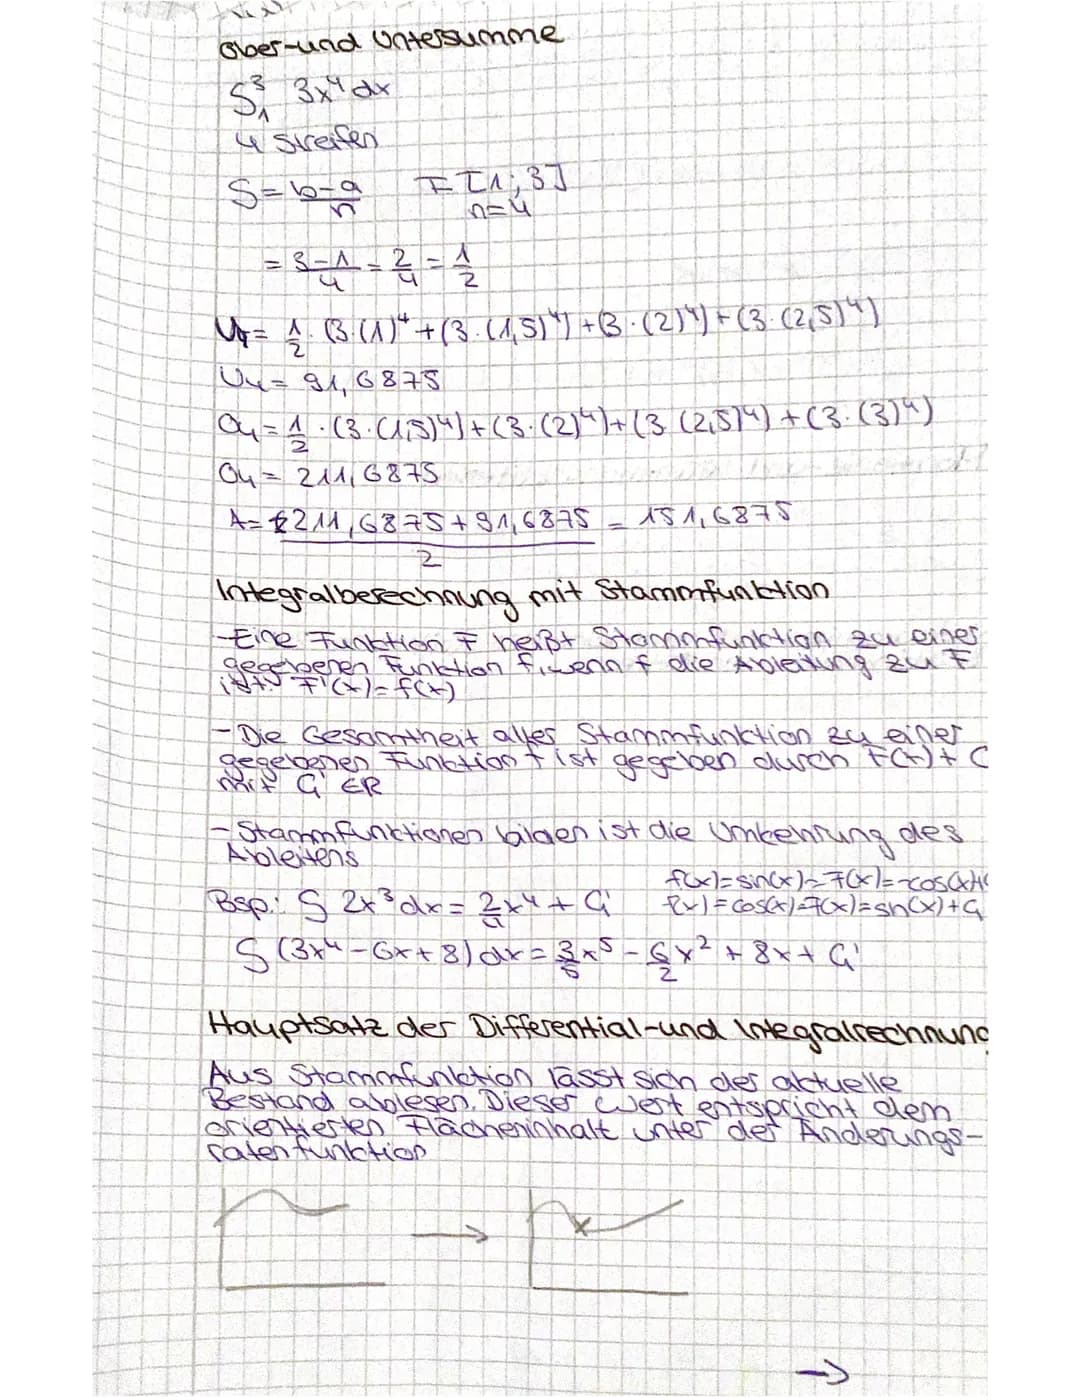 Ober-und Untersumme
S³₁ 3x⁴ dx
4 Streifen
S = b-a/n I [1 ; 3]
n=4
= 3-1/4 = 2/4 = 1/2
U₄ = 1/2 · (3·(1)⁴ + (3·(1,5)⁴) + (3·(2)⁴) + (3·(2,5)⁴)
U₄ = 91,6875
O₄ = 1/2 · (3·(1,5)⁴) + (3·(2)⁴) + (3·(2,5)⁴) + (3·(3)⁴)
O₄ = 211,6875
A = 211,6875 + 91,6875/2 = 151,6875
Integralberechnung mit Stammfunktion
-Eine Funktion F heißt Stammfunktion zu einer
gegebenen Funktion f, wenn f die Ableitung zu F
ist: F'(x) = f(x)
-Die Gesamtheit aller Stammfunktion zu einer
gegebenen Funktion f ist gegeben durch F(x) + C
mit C ∈ R
-Stammfunktionen bilden ist die Umkehrung des
Ableitens
f(x)=sin(x)→F(x)=-cos(x)+C
Bsp.: ∫ 2x³ dx = 2/4 x⁴ + C f(x)=cos(x)→F(x)=sin(x)+C
∫ (3x⁴ - 6x + 8) dx = 3/5 x⁵ - 6/2 x² + 8x + C
Hauptsatz der Differential-und Integralrechnung
Aus Stammfunktion lässt sich der aktuelle
Bestand ablesen. Dieser Wert entspricht dem
orientierten Flächeninhalt unter der Änderungs-
ratenfunktion